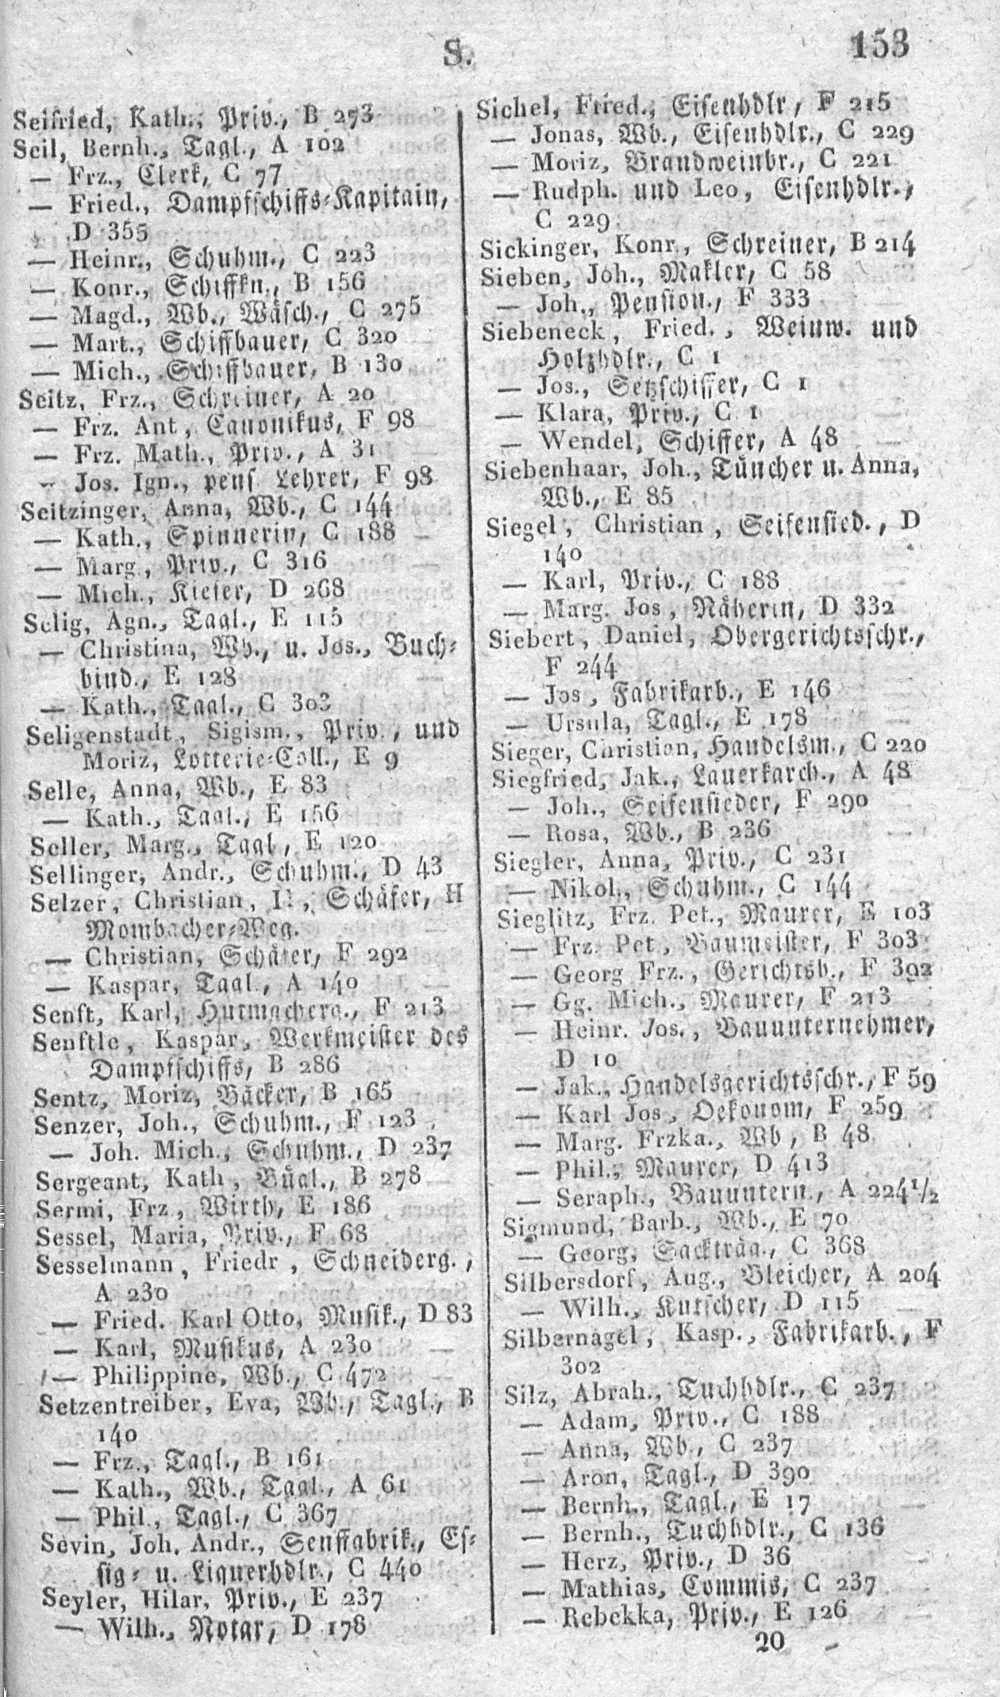 S.
153
Seifried, Kath., Priv., B 273
Seil, Bernh., Tagl., A 102
— Frz., Clerk, C 77
— Fried., Dampfschiffs-Kapitain,
D 355
— Heinr., Schuhm., C 223
— Konr., Schiffkn., B 156
— Magd., Wb., Wäsch., C 275
— Mart., Schiffbauer, C 320
— Mich., Schiffbauer, B 130
Seitz, Frz., Schreiner, A 20
— Frz. Ant, Canonikus, F 98
— Frz. Math., Priv., A 31
— Jos. Ign., pens Lehrer, F 98
Seitzinger, Anna, Wb., C 144
— Kath., Spinnerin, C 188
— Marg, Priv., C 316
— Mich., Kiefer, D 268
Selig, Agn., Tagl., E 115
— Christina, Wb., u. Jos., Buch-
bind., E 128
— Kath., Tagl., C 303
Seligenstadt, Sigism., Priv., und
Moriz, Lotterie-Coll., E 9
Selle, Anna, Wb., E 83
— Kath., Tagl., E 156
Seller, Marg., Tagl, E 120
Sellinger, Andr., Schuhm., D 43
Selzer, Christian, Schäfer, H
Mombacher-Weg.
— Christian, Schäfer, F 292
— Kaspar, Tagl., A 140
Senft, Karl, Hutmacherg., F 213
Senftle, Kaspar, Werkmeister des
Dampfschiffs, B 286
Sentz, Moriz, Bäcker, B 165
Senzer, Joh., Schuhm., F 123
— Joh. Mich., Schuhm., D 237
Sergeant, Kath, Bügl., B 278
Sermi, Frz, Wirth, E 186
Sessel, Maria, Priv., F 68
Sesselmann, Friedr, Schneiderg.,
A 230
— Fried. Karl Otto, Musik., D 83
— Karl, Musikus, A 230
— Philippine, Wb., C 472
Setzentreiber, Eva, Wb., Tagl., B
140
— Frz., Tagl., B 161
— Kath., Wb., Tagl., A 61
— Phil., Tagl., C 367
Sevin, Joh. Andr., Senffabrik., Es-
sig- u. Liquerhdlr., C 440
Seyler, Hilar, Priv., E 237
— Wilh., Notar, D 178
Sichel, Fried., Eisenhdlr, F 215
— Jonas, Wb., Eisenhdlr., C 229
— Moriz, Brandweinbr., C 221
— Rudph. und Leo, Eisenhdlr.,
C 229
Sickinger, Konr., Schreiner, B 214
Sieben, Joh., Makler, C 58
— Joh., Pension., F 333
Siebeneck, Fried., Weinw. und
Holzhdlr., C 1
— Jos., Setzschiffer, C 1
— Klara, Priv., C 1
— Wendel, Schiffer, A 48
Siebenhaar, Joh., Tüncher u. Anna,
Wb., E 85
Siegel, Christian, Seifensied., D
140
— Karl, Priv., C 188
— Marg. Jos, Näherin, D 332
Siebert, Daniel, Obergerichtsschr.,
F 244
— Jos, Fabrikarb., E 146
— Ursula, Tagl., E 178
Sieger, Christian, Handelsm., C 220
Siegfried, Jak., Lauerkarch., A 48
— Joh., Seifensieder, F 290
— Rosa, Wb., B 236
Siegler, Anna, Priv., C 231
— Nikol., Schuhm., C 144
Sieglitz, Frz. Pet., Maurer, E 103
— Frz. Pet, Baumeister, F 303
— Georg Frz., Gerichtsb., F 392
— Gg. Mich., Maurer, F 213
— Heinr. Jos., Bauunternehmer,
D 10
— Jak., Handelsgerichtsschr., F 59
— Karl Jos, Oekonom, F 259
— Marg. Frzka., Wb, B 48
— Phil., Maurer, D 413
— Seraph., Bauuntern., A 224 1/2
Sigmund, Barb., Wb., E 70
— Georg, Sackträg., C 368
Silbersdorf, Aug., Bleicher, A 204
— Wilh., Kutscher, D 115
Silbernagel, Kasp., Fabrikarb., F
302
Silz, Abrah., Tuchhdlr., C 237
— Adam, Priv., C 188
— Anna, Wb., C 237
— Aron, Tagl., D 390
— Bernh., Tagl., E 17
— Bernh., Tuchhdlr., C 136
— Herz, Priv., D 36
— Mathias, Commis, C 237
— Rebekka, Priv., E 126
20